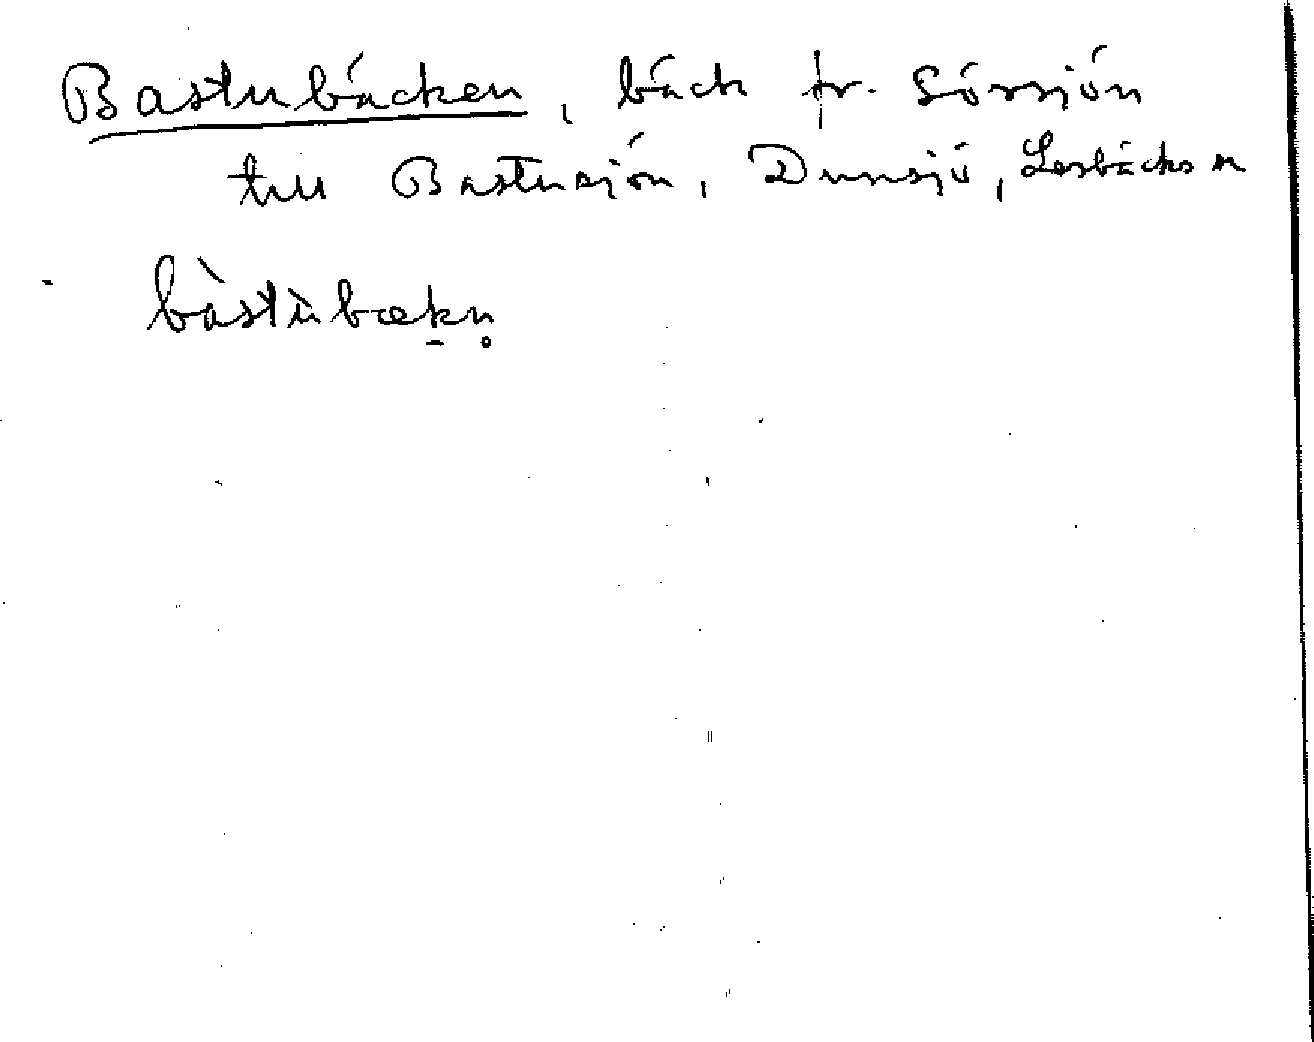 Bastubäcken, bäck fr. Sörsjön
till Bastusjön, Dunsjö, Losbäcks sn
bàstu̇̀bækn̥